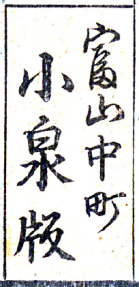 富山中町
小泉版